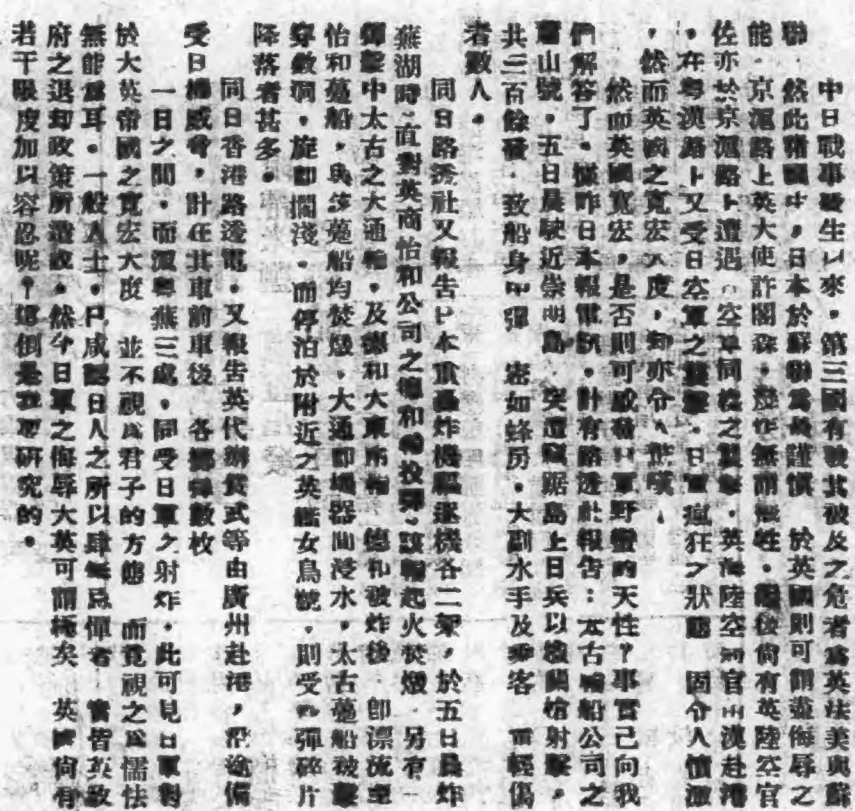 中日戰事發生以來，第三國有被其波及之危者爲英法美與蘇
聯．然此諸國中，日本於蘇聯爲最謹慎　於英國則可謂盡侮辱之
能．京滬路上英大使許閣森，幾作無謂犧牲，嗣後尙有英陸空官
佐亦於京滬路上遭遇日空軍同樣之襲擊，英海陸空海官由漢赴港
，在粵漢路上又受日空軍之襲擊。日軍瘋狂之狀態　固令人憤激
，然而英國之寬宏大度，却亦令人
然而英國寬宏，是否則可感發日軍野蠻的天性？事實已向我
們解答了。據昨日本報電訊，計有路透社報告：太古輪船公司之
山號，五日晨駛近崇明島　突遭竄踞島上日兵以機關槍射擊，
共三百餘發．致船身中彈　密如蜂房。大副水手及乘客　而輕傷
者數人。
同日路透社又報告日本重轟炸機驅逐機各二架，於五日晨炸
蕪湖時，直對英商怡和公司之德和輪投彈，該輪起火焚燬．另有一
彈擊中太古之大通輪，及怡和大東　　德和被炸後　即漂流至
怡和躉船，與該躉船均焚燬，大通即機器間浸水，太古躉船被擊
穿數洞，旋即擱淺。而停泊於附近之英艦女鳥號，則受炸彈碎片
降落者甚多。
同日香港路透電，又報告英代辦賀武等由廣州赴港，沿途備
受日機威脅，計在其車前車後　各擲彈數枚
一日之間，而滬粵蕪三處，同受日軍之射炸，此可見日軍對
於大英帝國之寬宏大度　並不視爲君子的方態　而竟視之爲懦怯
無能爲耳。一般人士，已咸認日人之所以肆無忌憚者　實皆英政
府之退却政策所造成。然今日軍之侮辱大英可謂極矣　英國尙有
若干限度加以容忍呢？這倒是我要研究的。